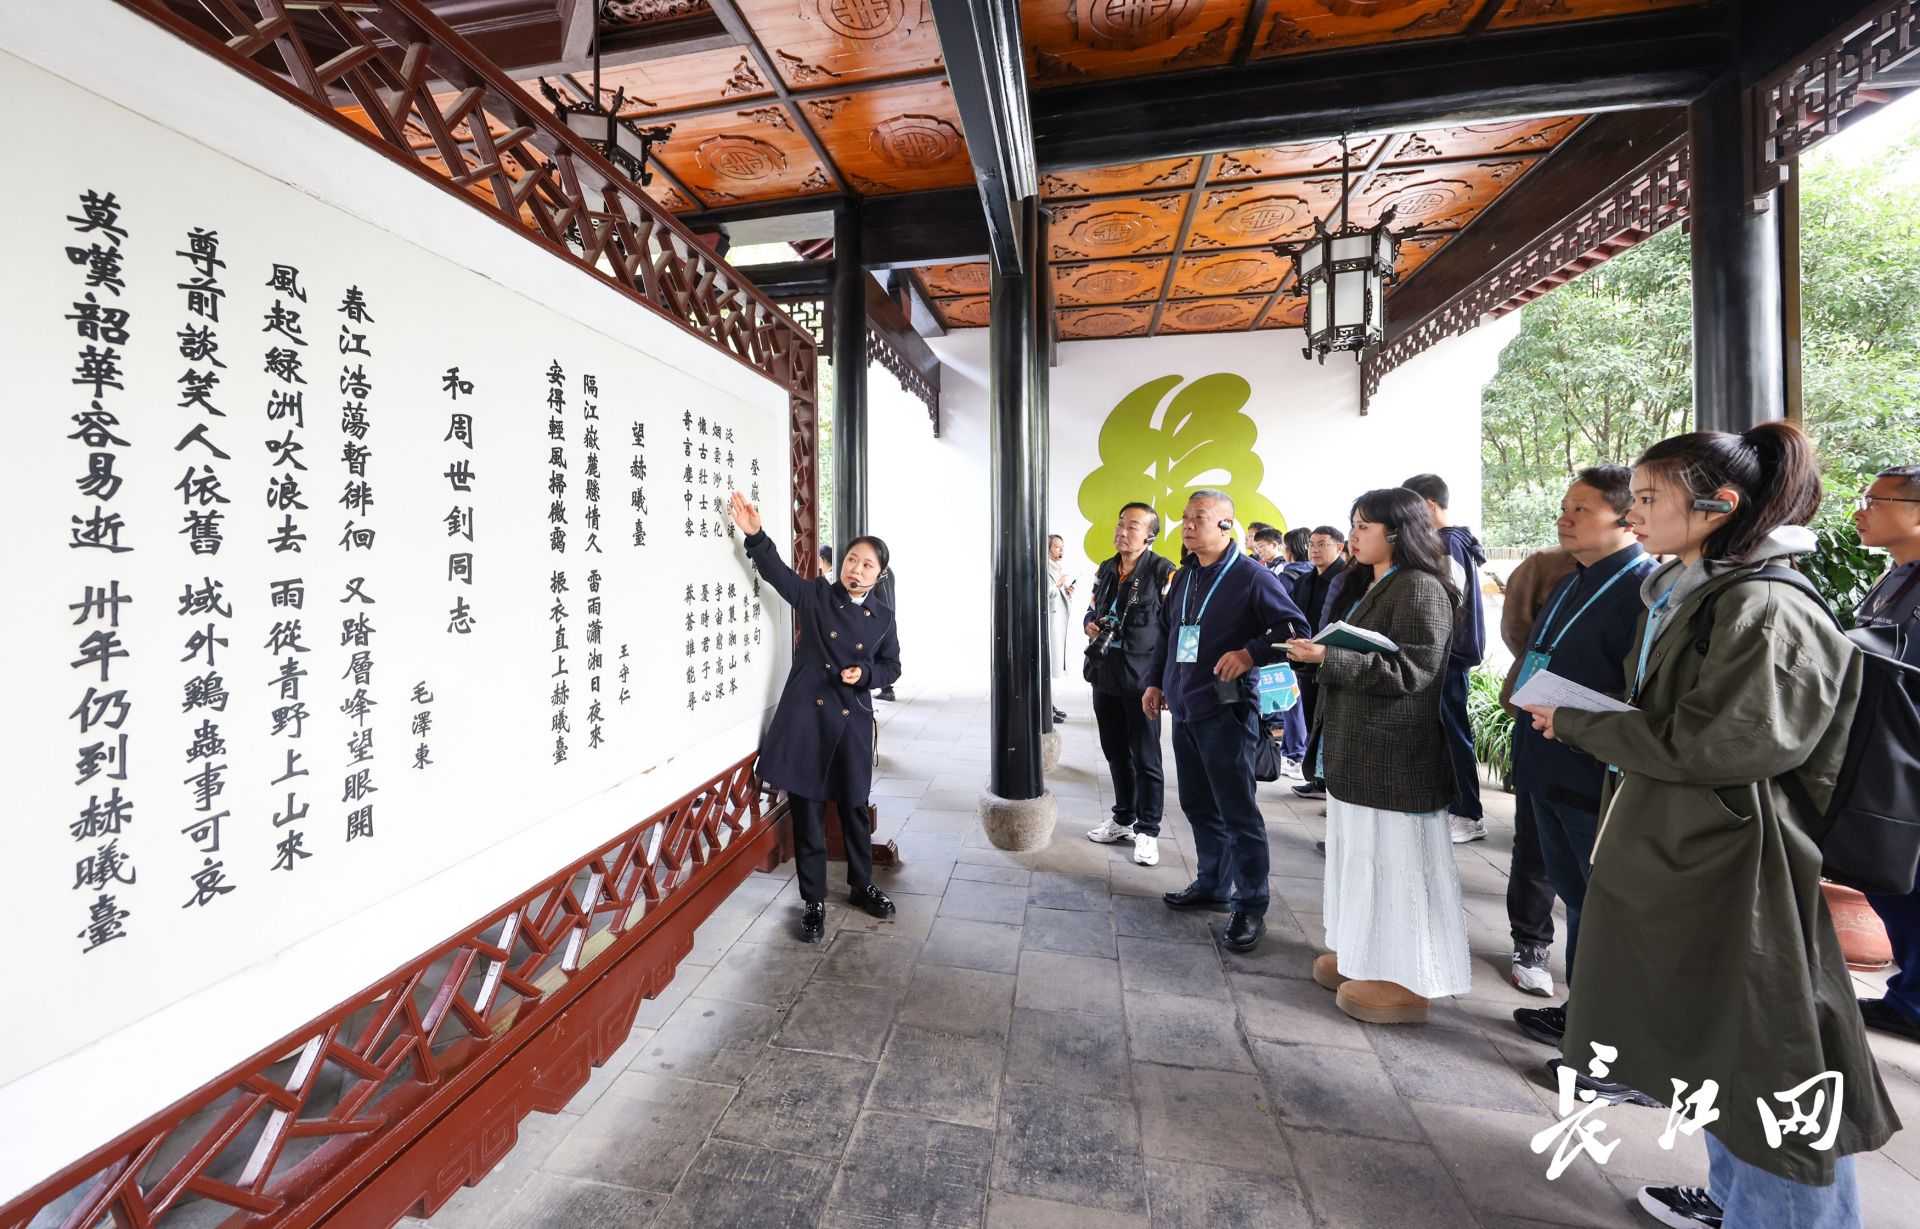 登嶽
泛舟長
朱熹 張栻
烟雲渺變化 宇宙窮高深
懷古壯士志 憂時君子心
寄言塵中客 莽蒼誰能尋
望赫曦臺
王守仁
隔江嶽麓懸情久 雷雨瀟湘日夜來
安得輕風掃微靄 振衣直上赫曦臺
和周世釗同志
毛澤東
春江浩蕩暫徘徊 又踏層峰望眼開
風起綠洲吹浪去 雨從青野上山來
尊前談笑人依舊 域外鷄蟲事可哀
莫嘆韶華容易逝 卅年仍到赫曦臺
我在
長江网